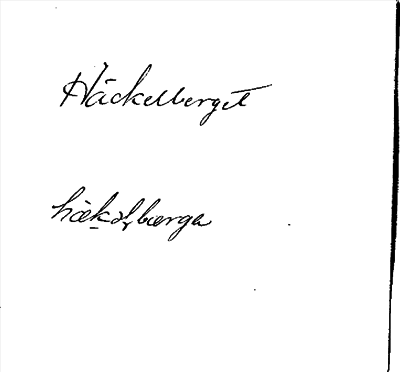 Häckelberget
hækəl̥bærgə